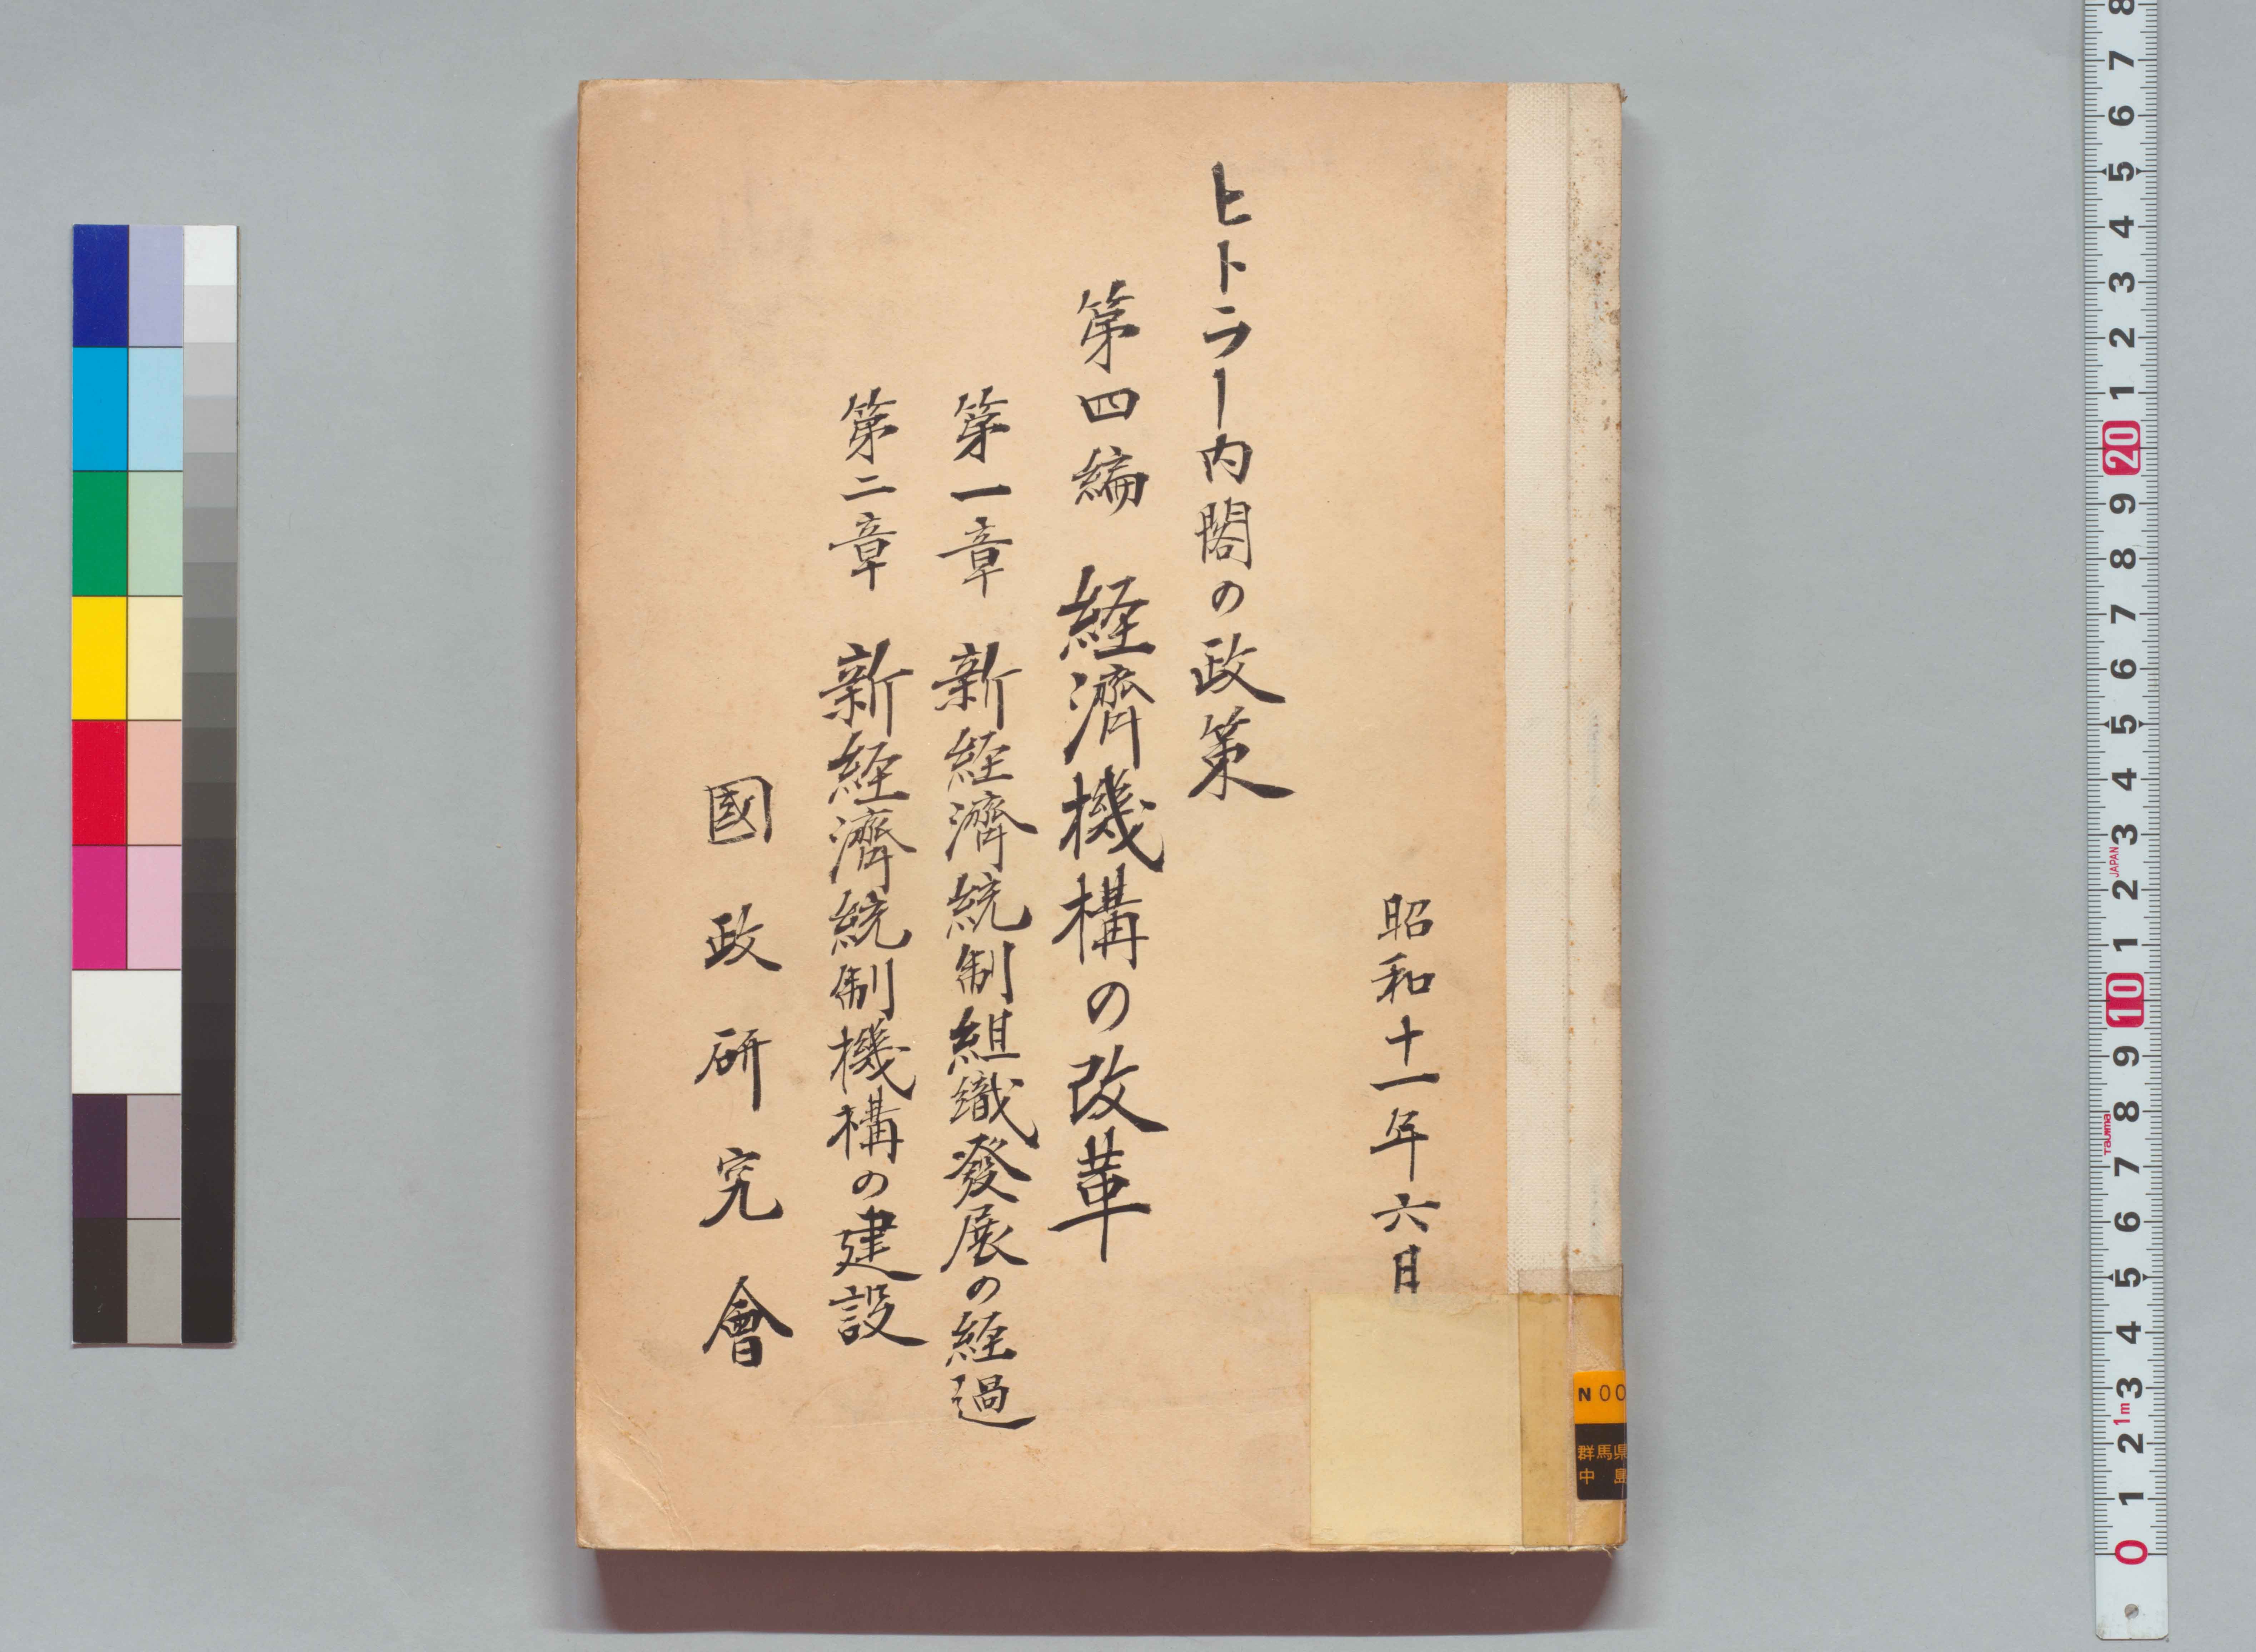 昭和十一年六月
ヒトラー内閣の政策
第四編 経済機構の改革
第一章 新経済統制組織發展の経過
第二章 新経済統制機構の建設
國政研究會
N00
群馬県
中島
8 7 6 5 4 3 2 1 20 9 8 7 6 5 4 3 2 1 10 9 8 7 6 5 4 3 2 1 0
JAPAN
Tajima
1m